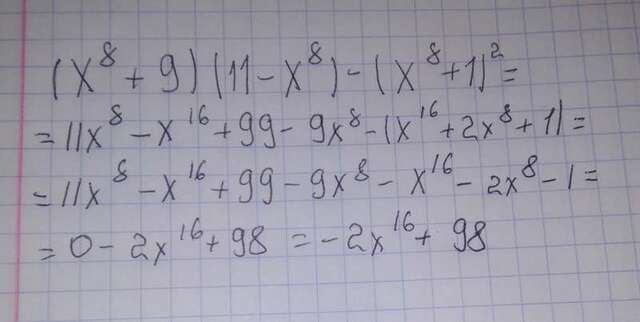 (x⁸ + 9)(11 - x⁸) - (x⁸ + 1)² =
= 11x⁸ - x¹⁶ + 99 - 9x⁸ - (x¹⁶ + 2x⁸ + 1) =
= 11x⁸ - x¹⁶ + 99 - 9x⁸ - x¹⁶ - 2x⁸ - 1 =
= 0 - 2x¹⁶ + 98 = -2x¹⁶ + 98